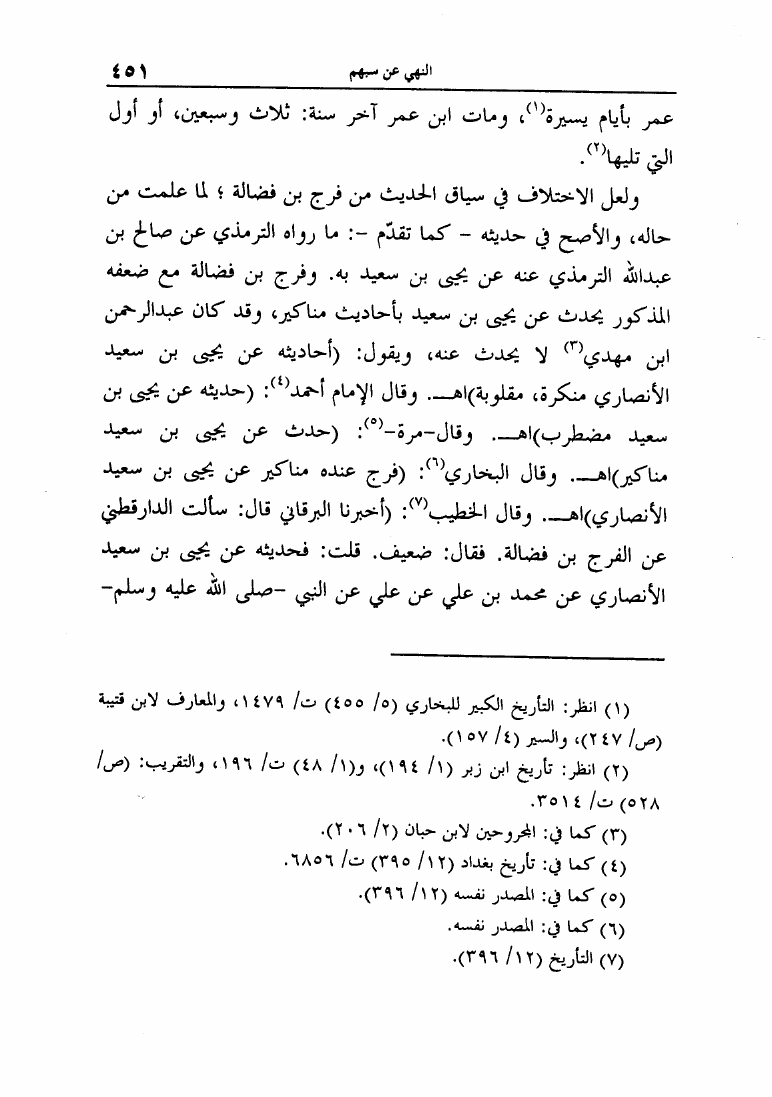 النهي عن سبهم ٤٥١
عمر بأيام يسيرة(١)، ومات ابن عمر آخر سنة: ثلاث وسبعين، أو أول
التي تليها(٢).
ولعل الاختلاف في سياق الحديث من فرج بن فضالة ؛ لما علمت من
حاله، والأصح في حديثه – كما تقدّم –: ما رواه الترمذي عن صالح بن
عبدالله الترمذي عنه عن يحيى بن سعيد به. وفرج بن فضالة مع ضعفه
المذكور يحدث عن يحيى بن سعيد بأحاديث مناكير، وقد كان عبدالرحمن
ابن مهدي(٣) لا يحدث عنه، ويقول: (أحاديثه عن يحيى بن سعيد
الأنصاري منكرة، مقلوبة)اهـ. وقال الإمام أحمد(٤): (حديثه عن يحيى بن
سعيد مضطرب)اهـ. وقال-مرة-(٥): (حدث عن يحيى بن سعيد
مناكير)اهـ. وقال البخاري(٦): (فرج عنده مناكير عن يحيى بن سعيد
الأنصاري)اهـ. وقال الخطيب(٧): (أخبرنا البرقاني قال: سألت الدارقطني
عن الفرج بن فضالة. فقال: ضعيف. قلت: فحديثه عن يحيى بن سعيد
الأنصاري عن محمد بن علي عن علي عن النبي -صلى الله عليه وسلم-
(١) انظر: التأريخ الكبير للبخاري (٥/ ٤٥٥) ت/ ١٤٧٩، والمعارف لابن قتيبة
(ص/ ٢٤٧)، والسير (٤/ ١٥٧).
(٢) انظر: تأريخ ابن زبر (١/ ١٩٤)، و(١/ ٤٨) ت/ ١٩٦، والتقريب: (ص/
٥٢٨) ت/ ٣٥١٤.
(٣) كما في: المجروحين لابن حبان (٢/ ٢٠٦).
(٤) كما في: تأريخ بغداد (١٢/ ٣٩٥) ت/ ٦٨٥٦.
(٥) كما في: المصدر نفسه (١٢/ ٣٩٦).
(٦) كما في: المصدر نفسه.
(٧) التأريخ (١٢/ ٣٩٦).